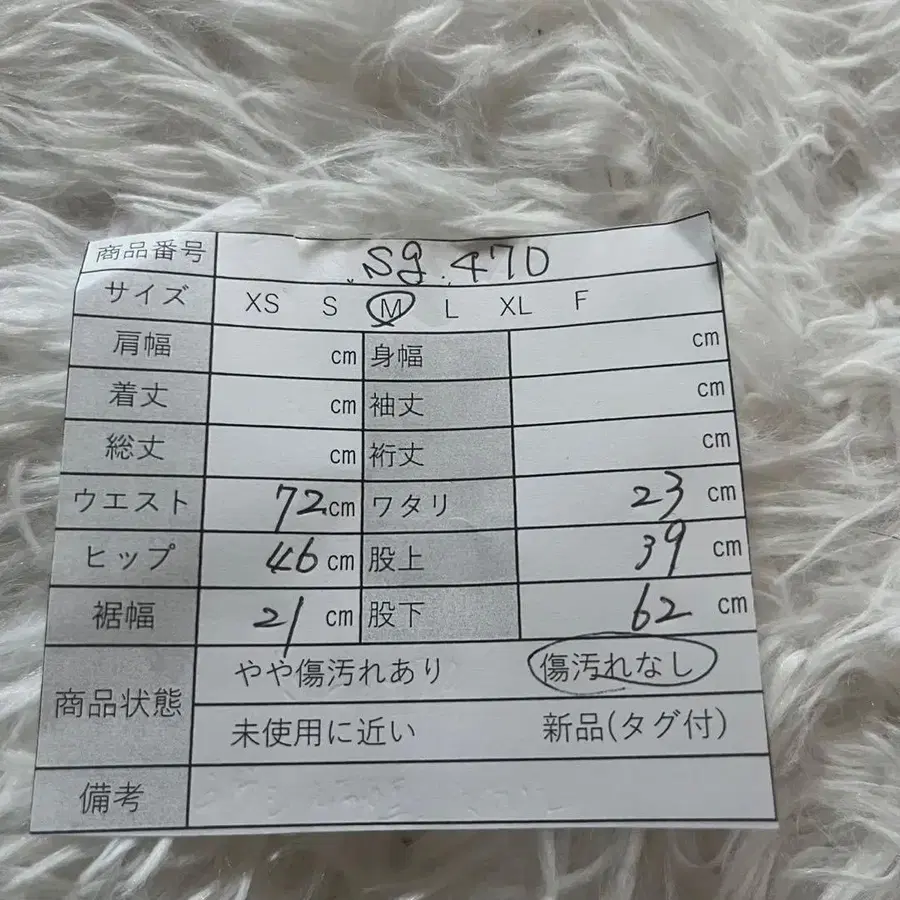 商品番号 Sg.470
サイズ XS S M L XL F
肩幅 cm 身幅 cm
着丈 cm 袖丈 cm
総丈 cm 裄丈 cm
ウエスト 72cm ワタリ 23 cm
ヒップ 46 cm 股上 39 cm
裾幅 21 cm 股下 62 cm
商品状態 やや傷汚れあり 傷汚れなし
未使用に近い 新品(タグ付)
備考